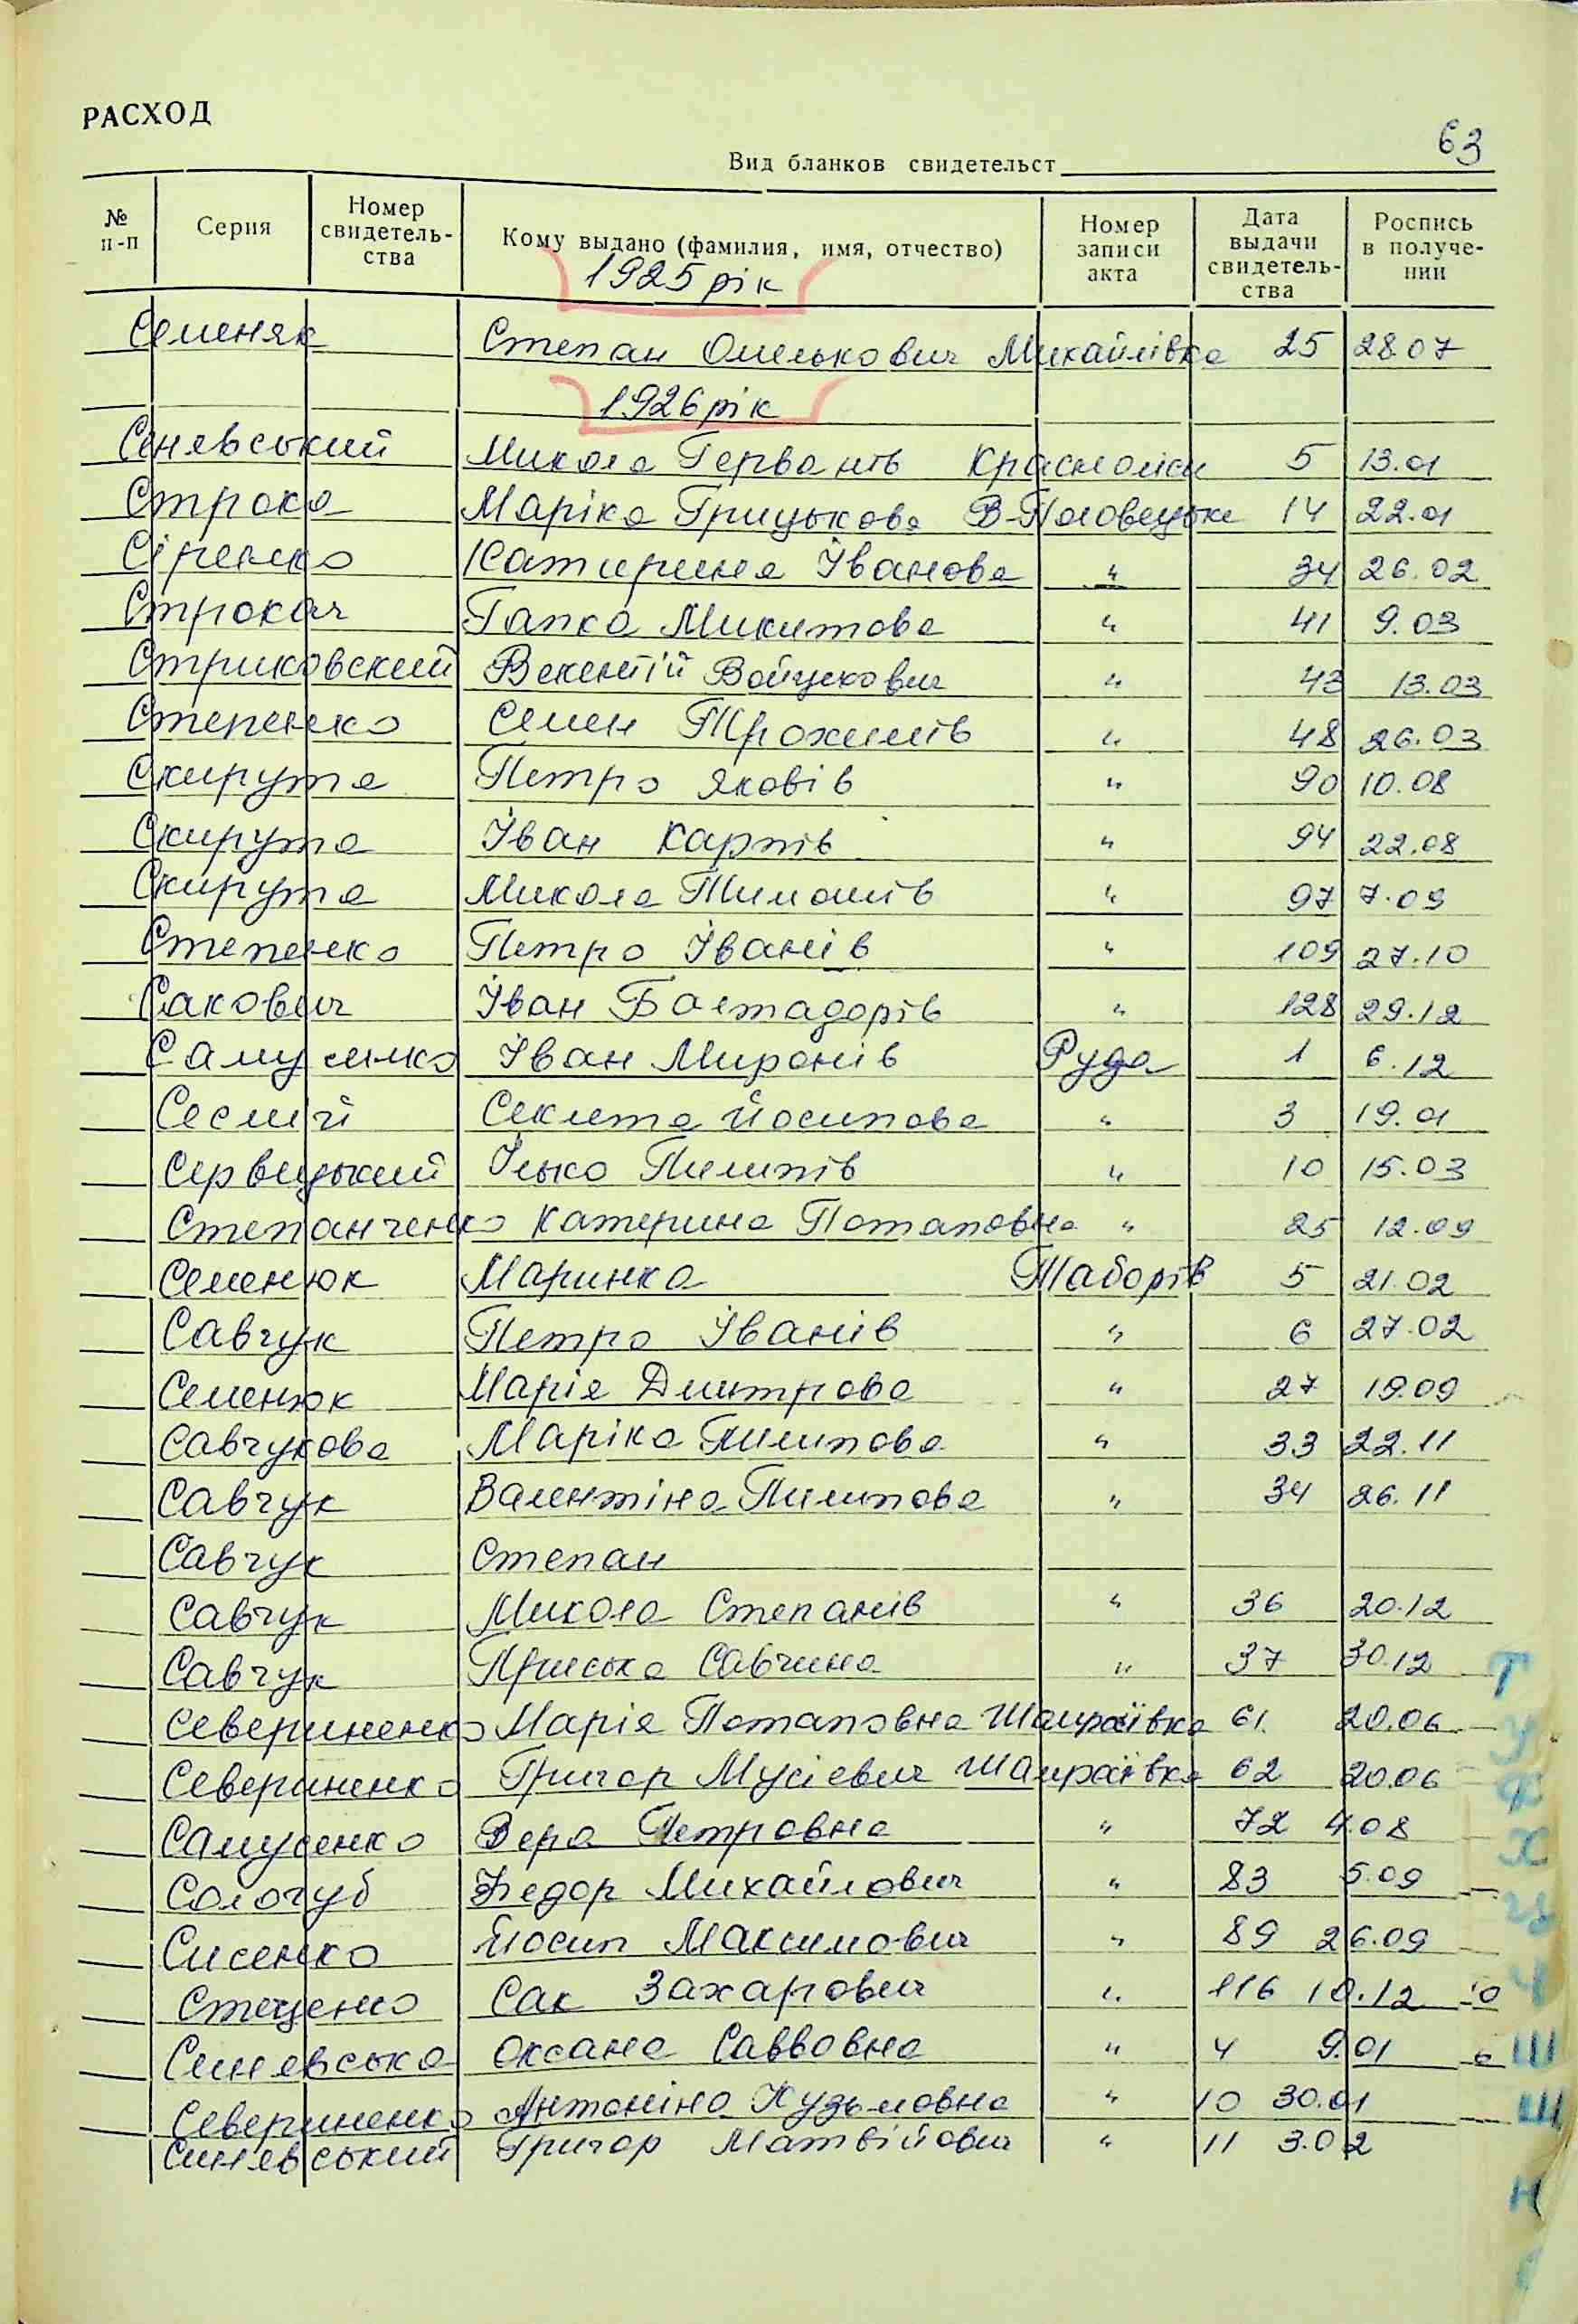 РАСХОД
63
Вид бланков свидетельст
№ п-п Серия Номер свидетель- ства Кому выдано (фамилия, имя, отчество) Номер записи акта Дата выдачи свидетель- ства Роспись в получе- нии
1925 рік
Семеняк Степан Омелькович Михайлівка 25 28.07
1926 рік
Сенявський Микола Герванів Красноліси 5 13.01
Строка Маріка Грицькова В-Половецьке 14 22.01
Сіренко Катирина Іванова " 34 26.02
Строкач Гапка Микитова " 41 9.03
Стриковский Векентій Войцехович " 43 13.03
Степенко Семен Трохимів " 48 26.03
Скирута Петро Яковів " 90 10.08
Скирута Іван Карпів " 94 22.08
Скирута Микола Тимошів " 97 7.09
Степенко Петро Іванів " 109 27.10
Сакович Іван " 128 29.12
Самусенко Іван Миронів Руда 1 6.12
Секлета Йосипова " 3 19.01
Сервецький Ілько Пилипів " 10 15.03
Степанченко Катерина Потаповна " 25 12.09
Семенюк Маринка Таборів 5 21.02
Савчук Петро Іванів " 6 27.02
Семенюк Марія Дмитрова " 27 19.09
Савчукова Маріка Пилипова " 33 22.11
Савчук Валентіна Пилипова " 34 26.11
Савчук Степан
Савчук Микола Степанів " 36 20.12
Савчук Приська Савчина " 37 30.12
Севериненко Марія Потаповна Шамраївка 61. 20.06
Севериненко Григор Мусієвич Шамраївка 62 20.06
Самусенко Вера Петровна " 72 4.08
Сологуб Федор Михайлович " 83 5.09
Сисенко Йосип Максимович " 89 26.09
Стеценко Сак Захарович " 116 10.12
Синявська Оксана Саввовна " 4 9.01
Севериненко Антоніна Кузьмовна " 10 30.01
Синявський Григор Матвійович " 11 3.02
Т
У
Ф
Х
Ц
Ч
Ш
Щ